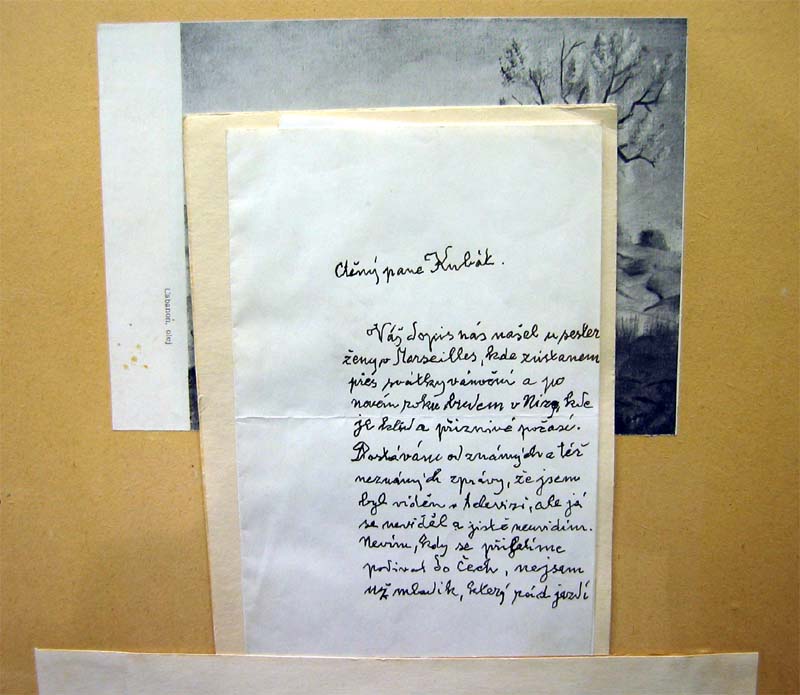 Ctěný pane Kubák.
Váš dopis nás našel u sester
ženy v Marseilles, kde zůstanem
přes svátky vánoční a po
novém roku budem v Nizze, kde
je klid a příznivé počasí.
Dostávám od známých a též
neznámých zprávy, že jsem
byl viděn v televizi, ale já
se neviděl a jistě neuvidím.
Nevím, kdy se přihatíme
podívat do Čech, nejsem
už mladík, který rád jezdí
Libanon, olej